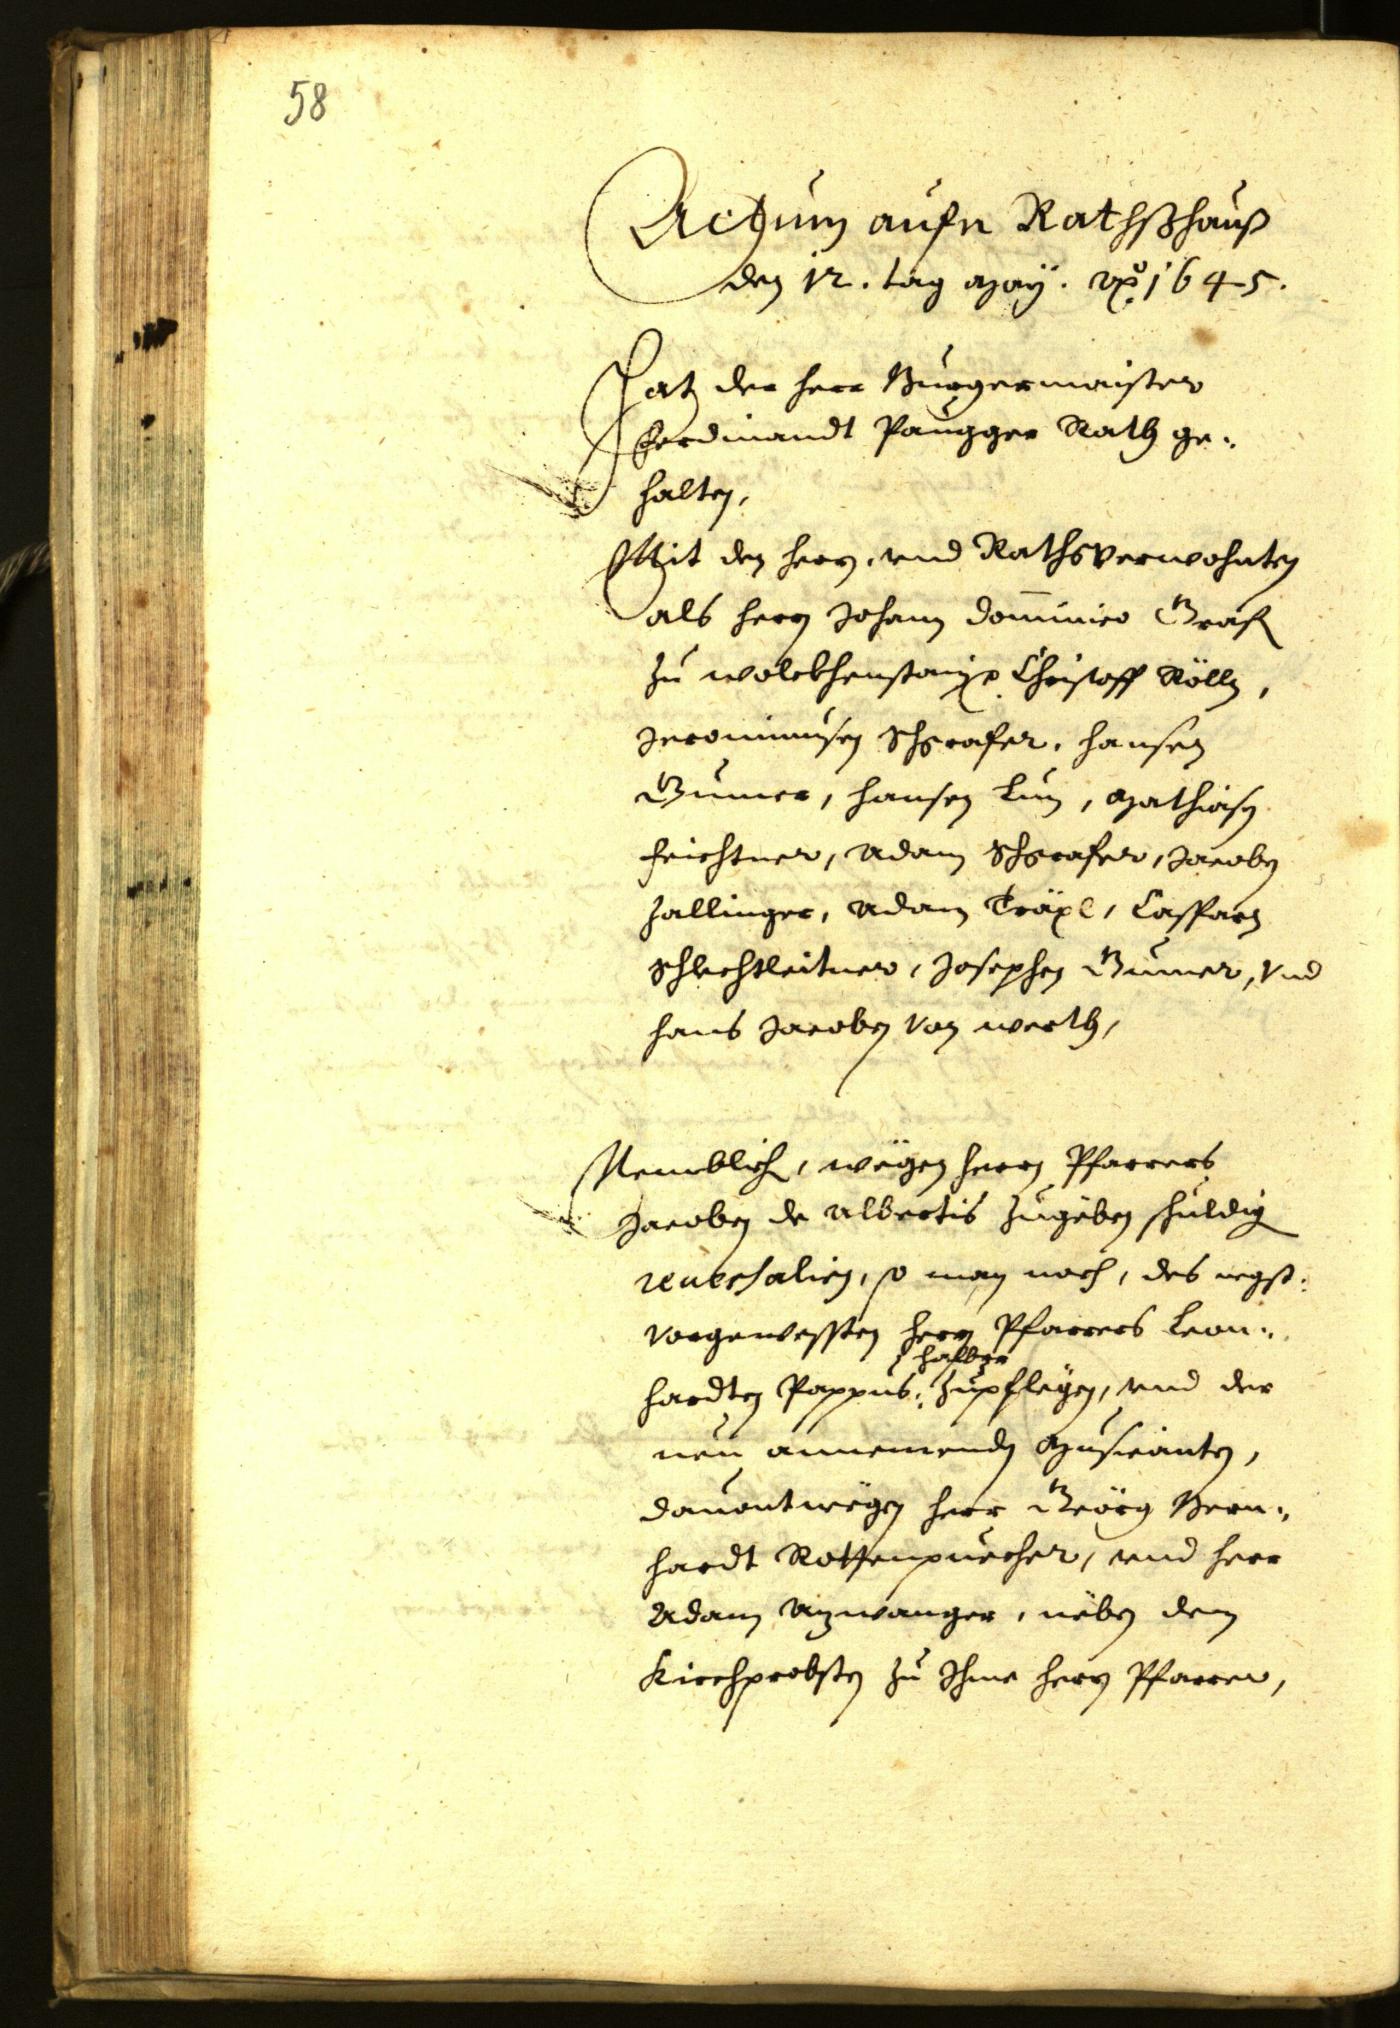 58
Actum aufn Rathßhauß
den 12. tag May. 1645.
Hat der herr Burgermaister
Ferdinandt Paugger Rath ge-
halten,
Mit den herrn, und Rathsverwohnten
als herrn Johann Dominico Graf
zu Wolckhenstain Christoff Rölln,
Jeronimusen Schgrafer, Hansen
Gumer, Hansen Lun, Mathiasn
Feichtner, Adam Schgrafer, Jacoben
Zallinger, Adam Träxl, Casparn
Schlechtleitner, Josephen Gumer, Und
Hans Jacoben Von Werth,
Nemblich, wegen herrn Pfarrers
Jacoben de Albertis zugeben schuldig
reversalien, so man noch, des negst-
vorgewessten herrn Pfarrers Leon-
halber
hardten Pappus: zupflegen, und der
neu annemenden Musicanten,
dauontwegen herr Geörg Bern-
hardt Rottenpuecher, und herr
Adam Unwanger, neben dem
Kirchprobsten zu Ihme herrn Pfarrer,